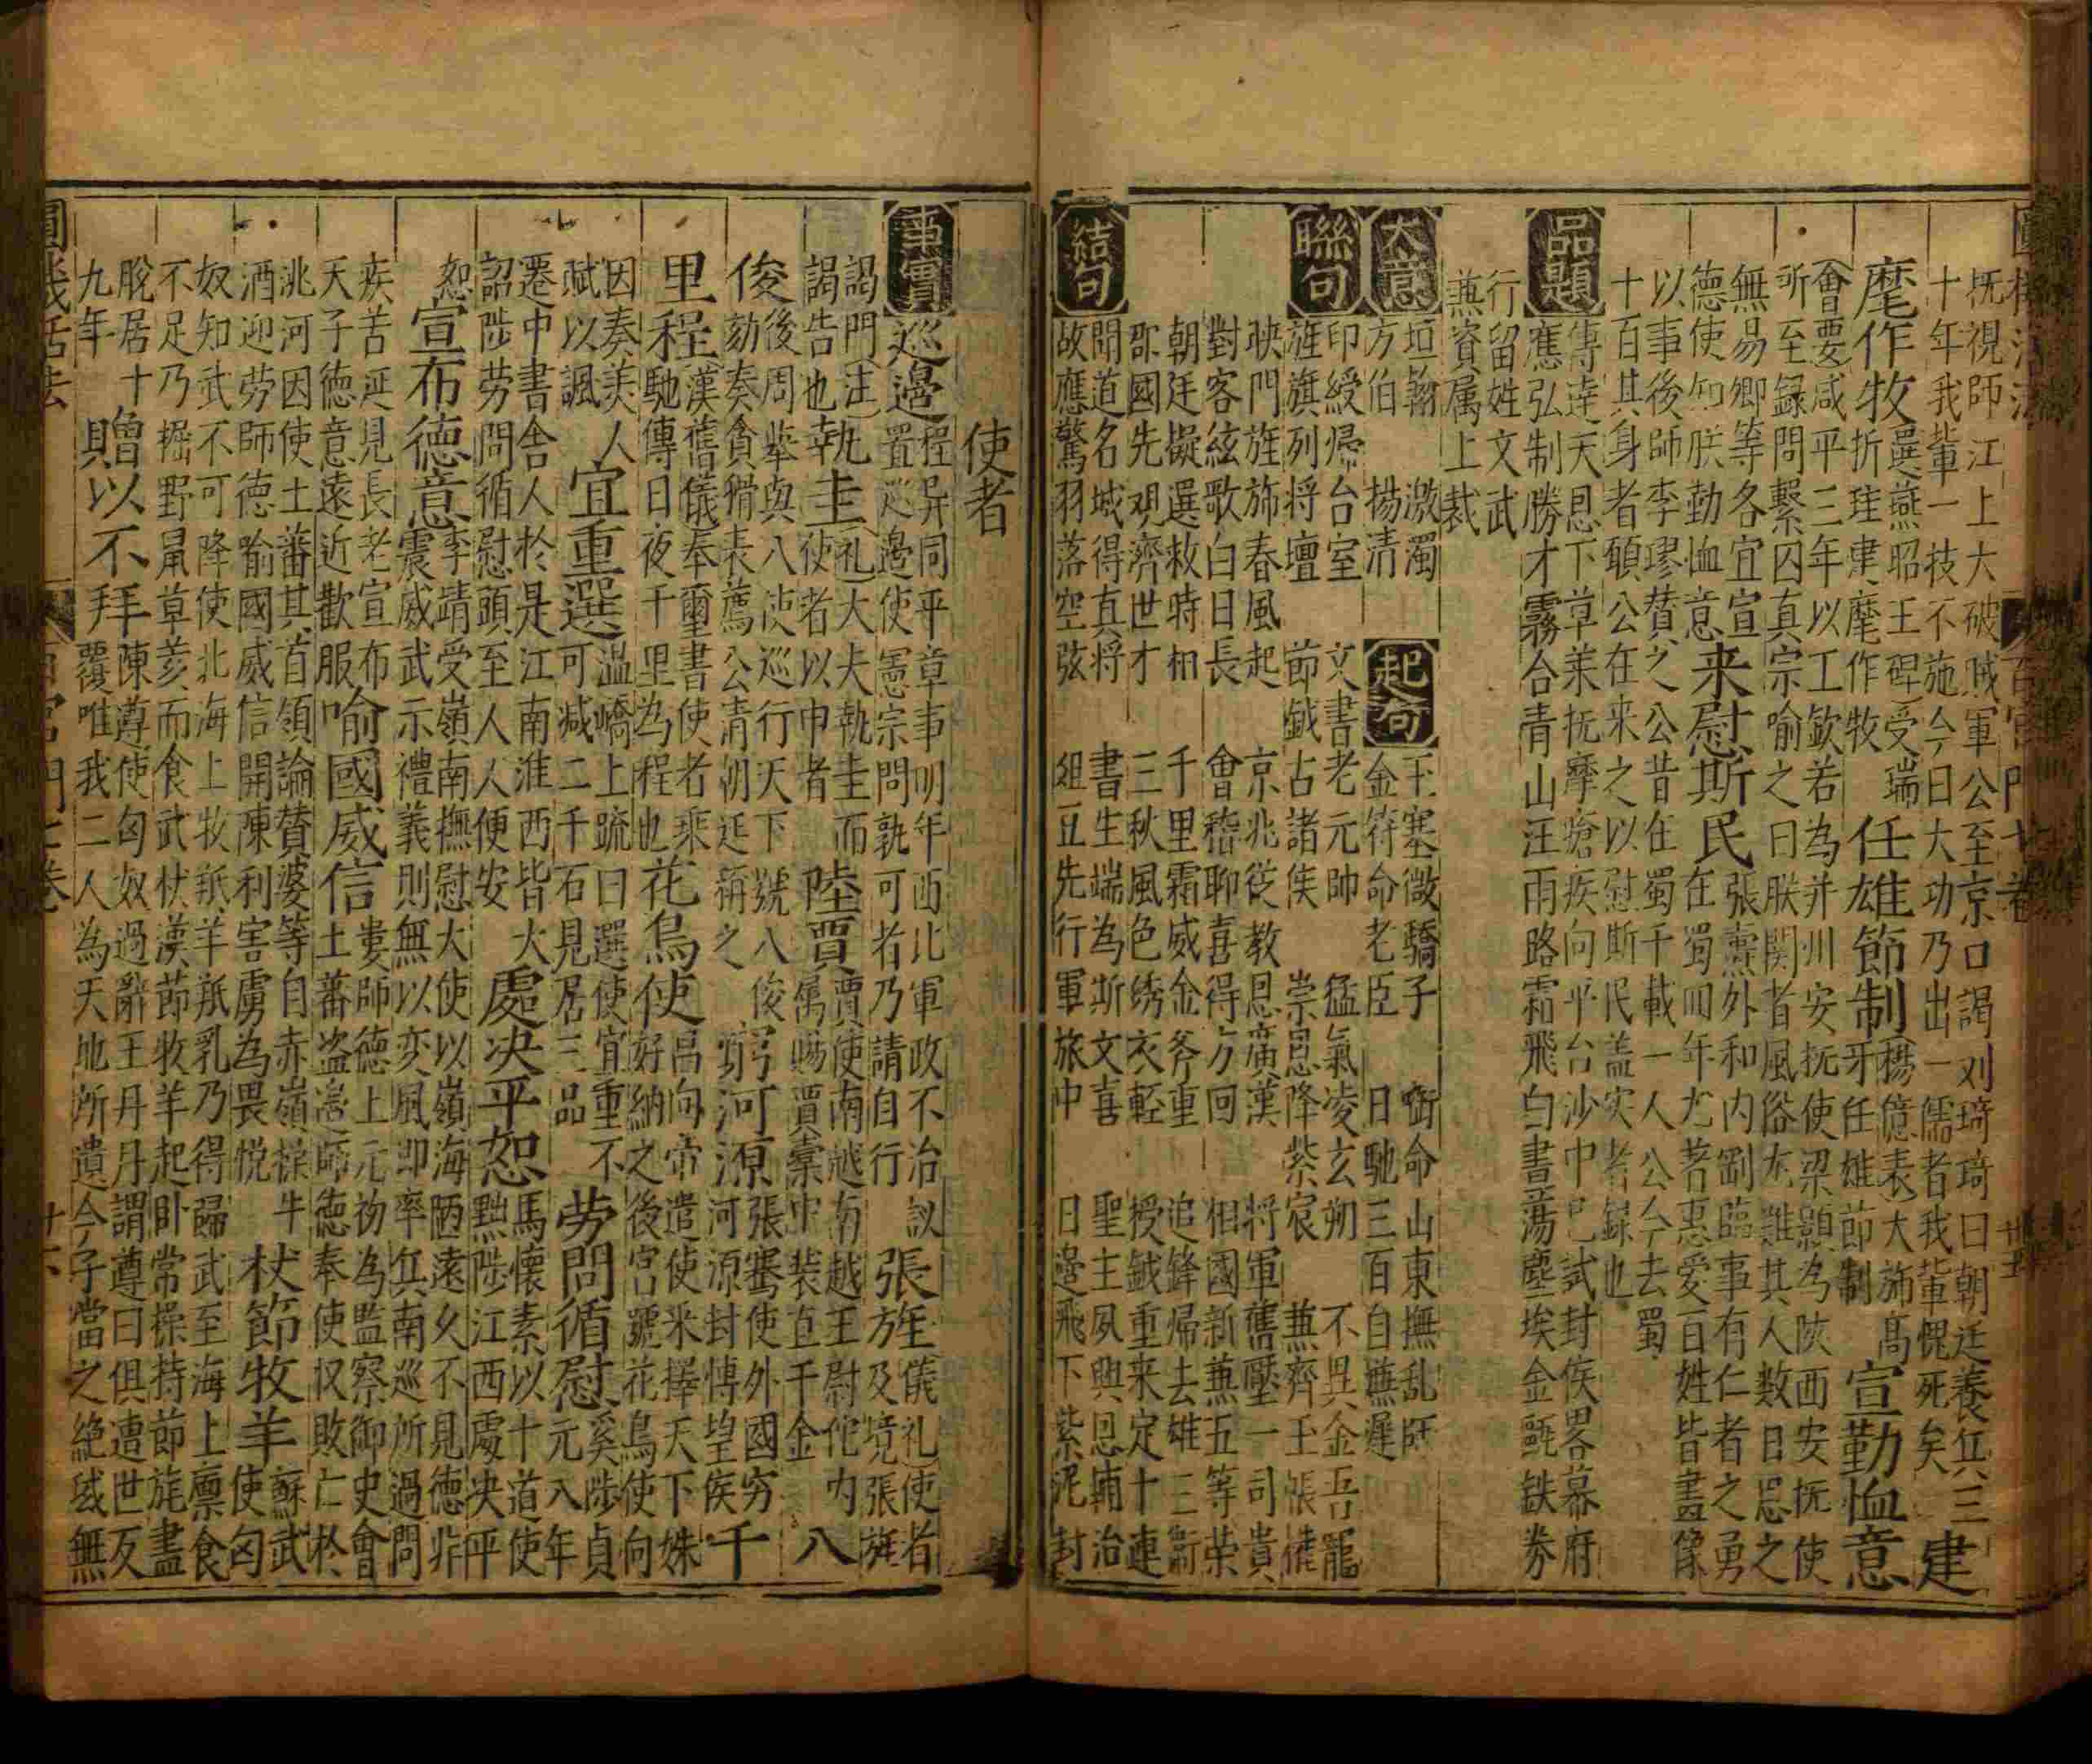 抚視師江上大破賊軍公至京口謁刘琦琦曰朝廷養兵三
十年我輩一技不施今日大功乃出一儒者我輩愧死矣
建麾作牧
選燕昭王碑受瑞
折珪建麾作牧
任雄節制
楊億表大施高
牙任雄節制
宣勤恤意
會要咸平三年以工欽若為并州安抚使梁顥為陝西安抚使
所至録問繫囚真宗喻之曰朕関者風俗尨難其人数日思之
無易卿等各宜宣
德使知朕勤恤意
来慰斯民
張燾外和内剛臨事有仁者之勇
在蜀四年尤著惠爱百姓皆畫像
以事後師李璆賛之公昔在蜀千載一人公今去蜀
十百其身者頋公在来之以慰斯民盖实者録也
品題
傳逹天恩下草萊抚摩瘡疾向平台沙中已試封侯畧幕府
應弘制勝才霧合青山汪雨路霜飛白書蕩塵埃金甌铁券
行留姓文武
兼資属上裁
大意
垣翰
方伯
激濁
揚清
起句
玉塞微驕子
金符命老臣
啣命山東撫乱師
日馳三百自嫌遲
聯句
印綬帰台室
旌旗列将壇
文書老元帥
節鉞古諸侯
猛氣凌玄朔
崇恩降紫宸
不異金吾寵
兼齊玉帳權
映門旌斾春風起
對客絃歌白日長
京兆從教恩廣漢
會稽聊喜得方回
将軍舊壓一司貴
相國新兼五等荣
朝廷擬選救時相
郡國先观濟世才
千里霜威金斧重
三秋風色绣衣輕
追鋒帰去雄三衛
授鉞重来定十連
結句
聞道名城得真将
故應驚羽落空弦
書生端為斯文喜
組豆先行軍旅中
聖主夙興思輔治
日邉飛下紫泥封
使者
事實
巡邉
程异同平章事明年西北軍政不治議
置巡邉使憲宗問孰可者乃請自行
張旌
儀礼使者
及境張旌
謁門
注
謁告也
執圭
礼大夫執圭而
使者以申者
陸賈
賈使南越南越王尉佗内
属赐賈橐中装直千金
八俊
後周舉與八使巡行天下號八俊
劾奏貪猾表薦公清朝廷稱之
窮河源
張騫使外國穷
河源封博望侯
千里程
漢舊儀奉璽書使者乘
馳傳日夜千里為程也
花鳥使
吕向帝遣使采擇天下姝
好納之後宮號花鳥使向
因奏美人
賦以諷
宜重選
温嶠上疏曰選使宜重不
可減二千石見居三品
劳問循慰
奚陟貞
元八年
遷中書舍人於是江南淮西皆大
詔陟劳問循慰頭至人人便安
處决平恕
馬懷素以十道使
黜陟江西處决平
恕
宣布徳意
李靖受嶺南撫慰大使以嶺海陋遠久不見徳非
震威武示禮義則無以变風即率兵南巡所過問
疾苦延見長老宣布
天子徳意遠近歡服
喻國威信
婁師德上元初為監察御史會
土蕃盗邉師徳奉使収敗亡於
洮河因使土蕃其首領論賛婆等自赤嶺操牛
酒迎劳師徳喻國威信開陳利害虜為畏悦
杖節牧羊
蘇武
使匈
奴知武不可降使北海上牧羝羊羝乳乃得歸武至海上廪食
不足乃掘野鼠草荄而食武杖漢節牧羊起卧常操持節旄盡
脫居十
九年
贈以不拜
陳遵使匈奴過辭王丹丹謂遵曰俱遭世反
覆唯我二人為天地所遺今子當之絶域無